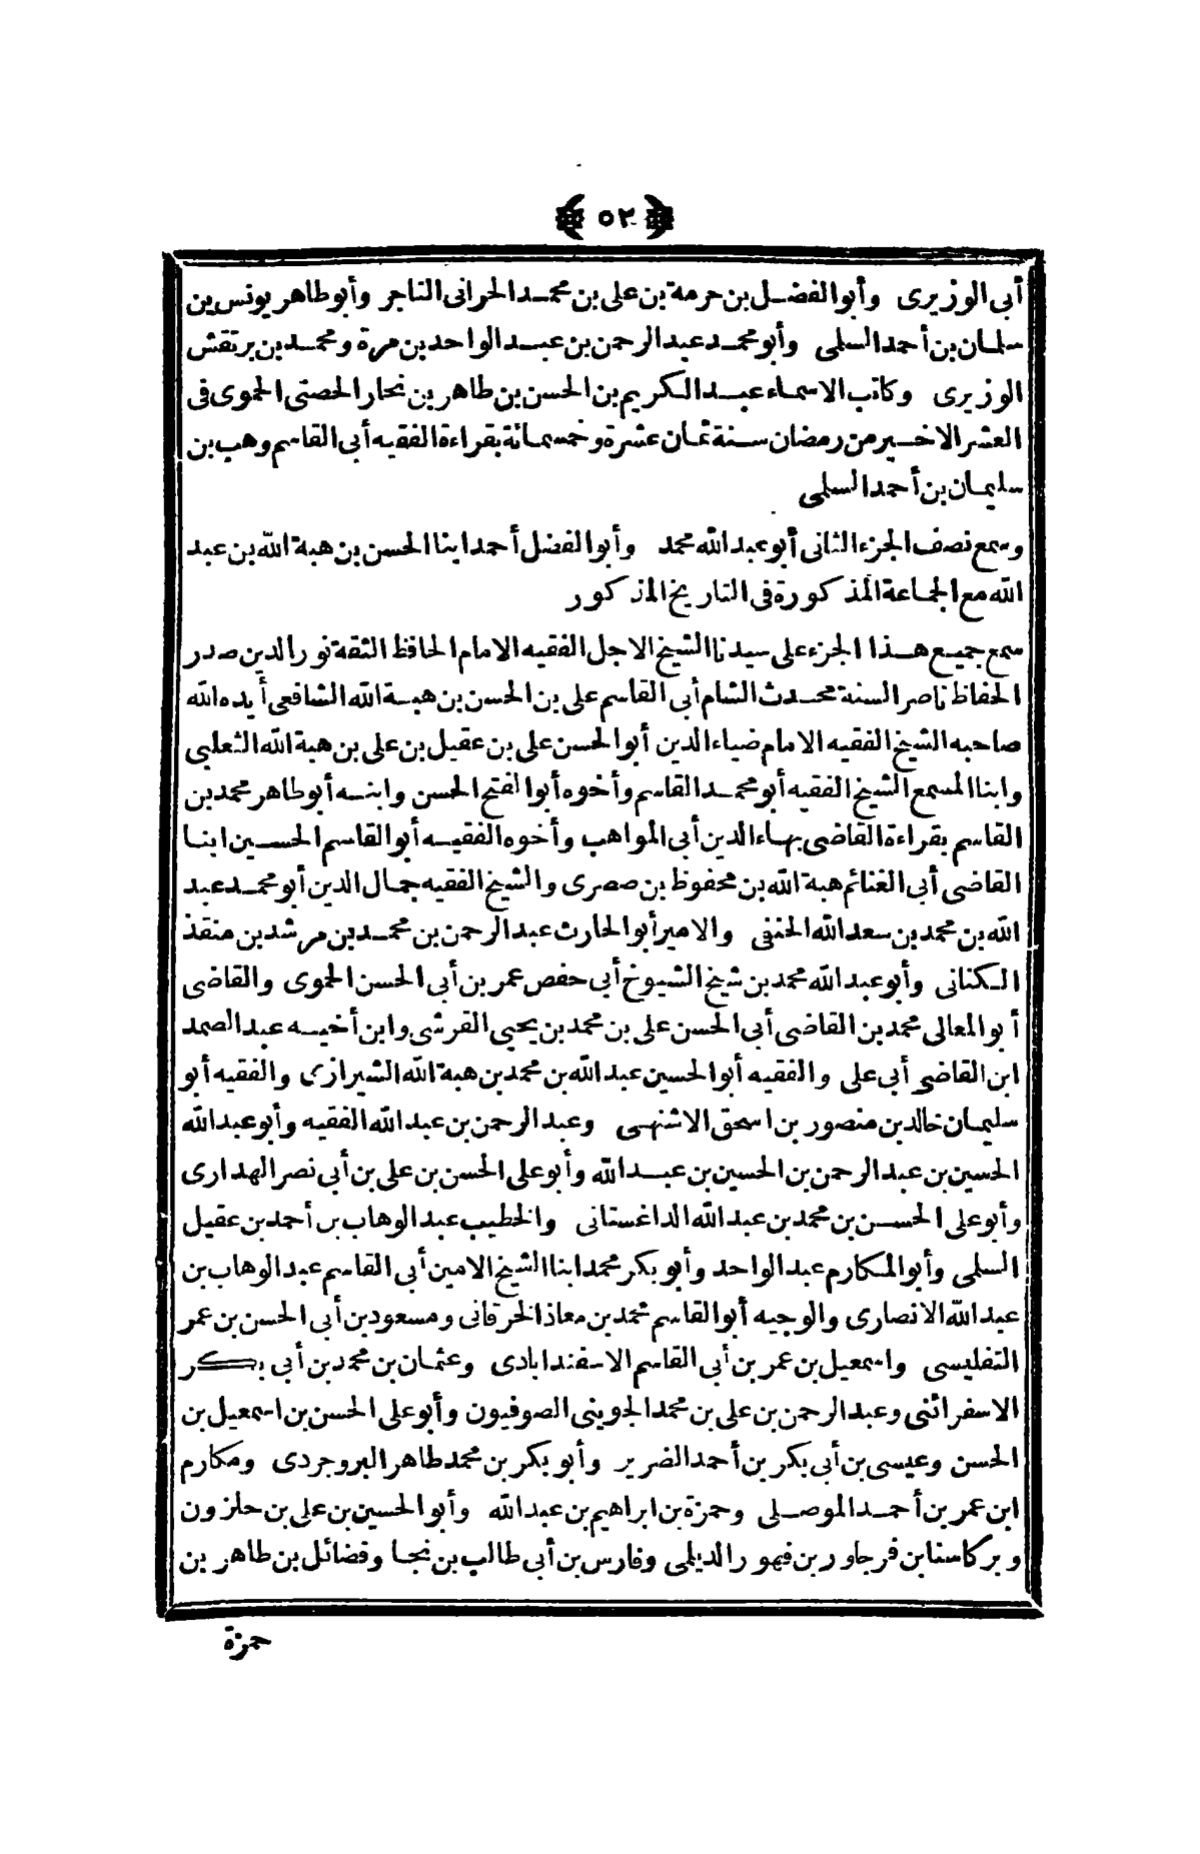 ﴿ ٥٢ ﴾
أبى الوزيرى وأبو الفضل بن حرمة بن على بن محمد الحرانى التاجر وأبو طاهر يونس بن
سلمان بن أحمد السلمى وأبو محمد عبد الرحمن بن عبد الواحد بن مرة ومحمد بن برتقش
الوزيرى وكاتب الاسماء عبد الكريم بن الحسن بن طاهر بن نحار الحصتى الحموى فى
العشر الاخير من رمضان سنة ثمان عشرة وخمسمائة بقراءة الفقيه أبى القاسم وهب بن
سليمان بن أحمد السلمى
وسمع نصف الجزء الثانى أبو عبد الله محمد وأبو الفضل أحمد ابنا الحسن بن هبة الله بن عبد
الله مع الجماعة المذكورة فى التاريخ المذكور
سمع جميع هذا الجزء على سيدنا الشيخ الاجل الفقيه الامام الحافظ الثقة نور الدين صدر
الحفاظ ناصر السنة محدث الشام أبى القاسم على بن الحسن بن هبة الله الشافعى أيده الله
صاحبه الشيخ الفقيه الامام ضياء الدين أبو الحسن على بن عقيل بن على بن هبة الله الثعلبى
وابنا المسمع الشيخ الفقيه أبو محمد القاسم وأخوه أبو الفتح الحسن وابنه أبو طاهر محمد بن
القاسم بقراءة القاضى بهاء الدين أبى المواهب وأخوه الفقيه أبو القاسم الحسين ابنا
القاضى أبى الغنائم هبة الله بن محفوظ بن صصرى والشيخ الفقيه جمال الدين أبو محمد عبد
الله بن محمد بن سعد الله الحنفى والامير أبو الحارث عبد الرحمن بن محمد بن مرشد بن منقذ
الكنانى وأبو عبد الله محمد بن شيخ الشيوخ أبى حفص عمر بن أبى الحسن الحموى والقاضى
أبو المعالى محمد بن القاضى أبى الحسن على بن محمد بن يحيى القرشى وابن أخيه عبد الصمد
ابن القاضى أبى على والفقيه أبو الحسين عبد الله بن محمد بن هبة الله الشيرازى والفقيه أبو
سليمان خالد بن منصور بن اسحق الاشنهى وعبد الرحمن بن عبد الله الفقيه وأبو عبد الله
الحسين بن عبد الرحمن بن الحسين بن عبد الله وأبو على الحسن بن على بن أبى نصر الهدارى
وأبو على الحسن بن محمد بن عبد الله الداغستانى والخطيب عبد الوهاب بن أحمد بن عقيل
السلمى وأبو المكارم عبد الواحد وأبو بكر محمد ابنا الشيخ الامين أبى القاسم عبد الوهاب بن
عبد الله الانصارى والوجيه أبو القاسم محمد بن معاذ الخرقانى ومسعود بن أبى الحسن بن عمر
التفليسى واسمعيل بن عمر بن أبى القاسم الاسفندابادى وعثمان بن محمد بن أبى بكر
الاسفرائنى وعبد الرحمن بن على بن محمد الجوينى الصوفيون وأبو على الحسن بن اسمعيل بن
الحسن وعيسى بن أبى بكر بن أحمد الضرير وأبو بكر بن محمد طاهر البروجردى ومكارم
ابن عمر بن أحمد الموصلى وحمزة بن ابراهيم بن عبد الله وأبو الحسين بن على بن خلزون
وبركاسنا بن فرجاور بن فيهور الديلمى وفارس بن أبى طالب بن نجا وفضائل بن طاهر بن
حمزة